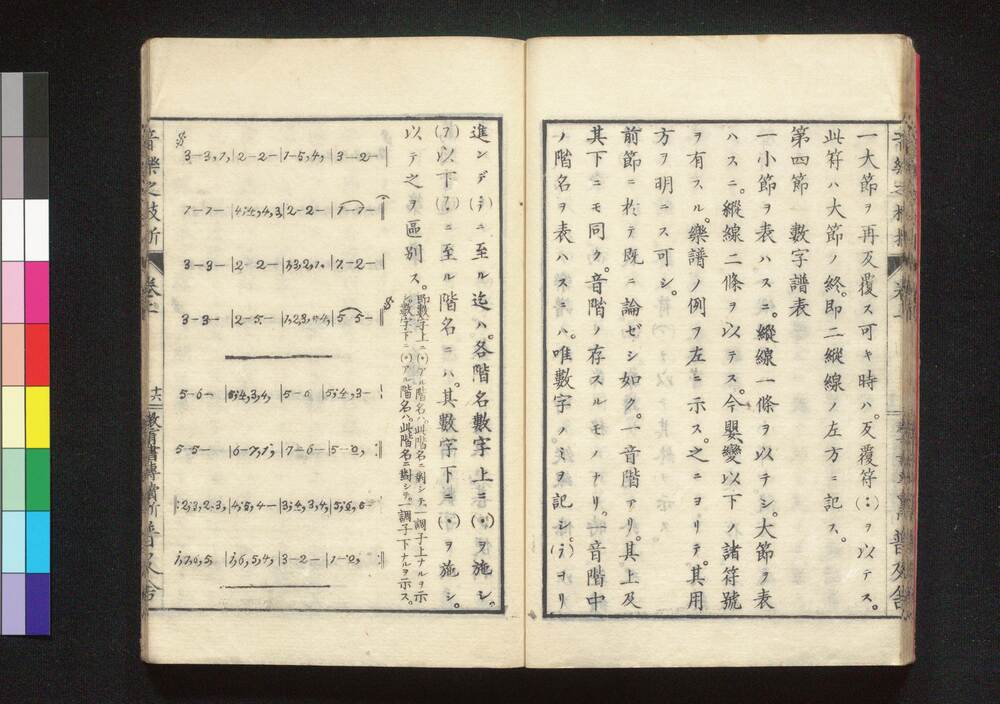 一大節ヲ再反覆ス可キ時ハ。反覆符(:)ヲ以テス。
此符ハ大節ノ終。即二縱線ノ左方ニ記ス。
第四節　數字譜表
一小節ヲ表ハスニ。縱線一條ヲ以テシ。大節ヲ表
ハスニ。縱線二條ヲ以テス。今嬰變以下ノ諸符號
ヲ有スル。樂譜ノ例ヲ左ニ示ス。之ニヨリテ。其用
方ヲ明ニス可シ。
前節ニ於テ既ニ論ゼシ如ク。一音階アリ。其上及
其下ニモ同ク。音階ノ存スルモノナリ。一音階中
ノ階名ヲ表ハスニハ。唯數字ノミヲ記シ。(i)ヨリ
進ンデ(i)ニ至ル迄ハ。各階名數字上ニ(・)ヲ施シ。
(7)以下(7)ニ至ル階名ニハ。其數字下ニ(・)ヲ施シ。
以テ之ヲ區別ス。
即數字上ニ(・)アル階名ハ。此階名ニ對シテ。一調子上ナルヲ示シ
數字下ニ(・)アル階名ハ。此階名ニ對シテ。一調子下ナルヲ示ス。
3-3,1,|2-2-|1-5,4,|3-2-|
1-1-|4,4,4,3|2-2-|1-1-‖
3-3-|2-2-|3,3,2,1.|7.-2-|
3-3-|2-5.-|1,2,3,4,|5-5-‖
5-6-|5,4,3,4,|5-6|5,4,3-
5-5-|6-7,1,|7-6-|5-0,:‖
:2,3,2-3,|4,5,4-|3,4,3,4,|5,6,5-
1,7,6,5|1,6,5,4,|3-2-|1-0,:‖
卷一
十六
普及舍